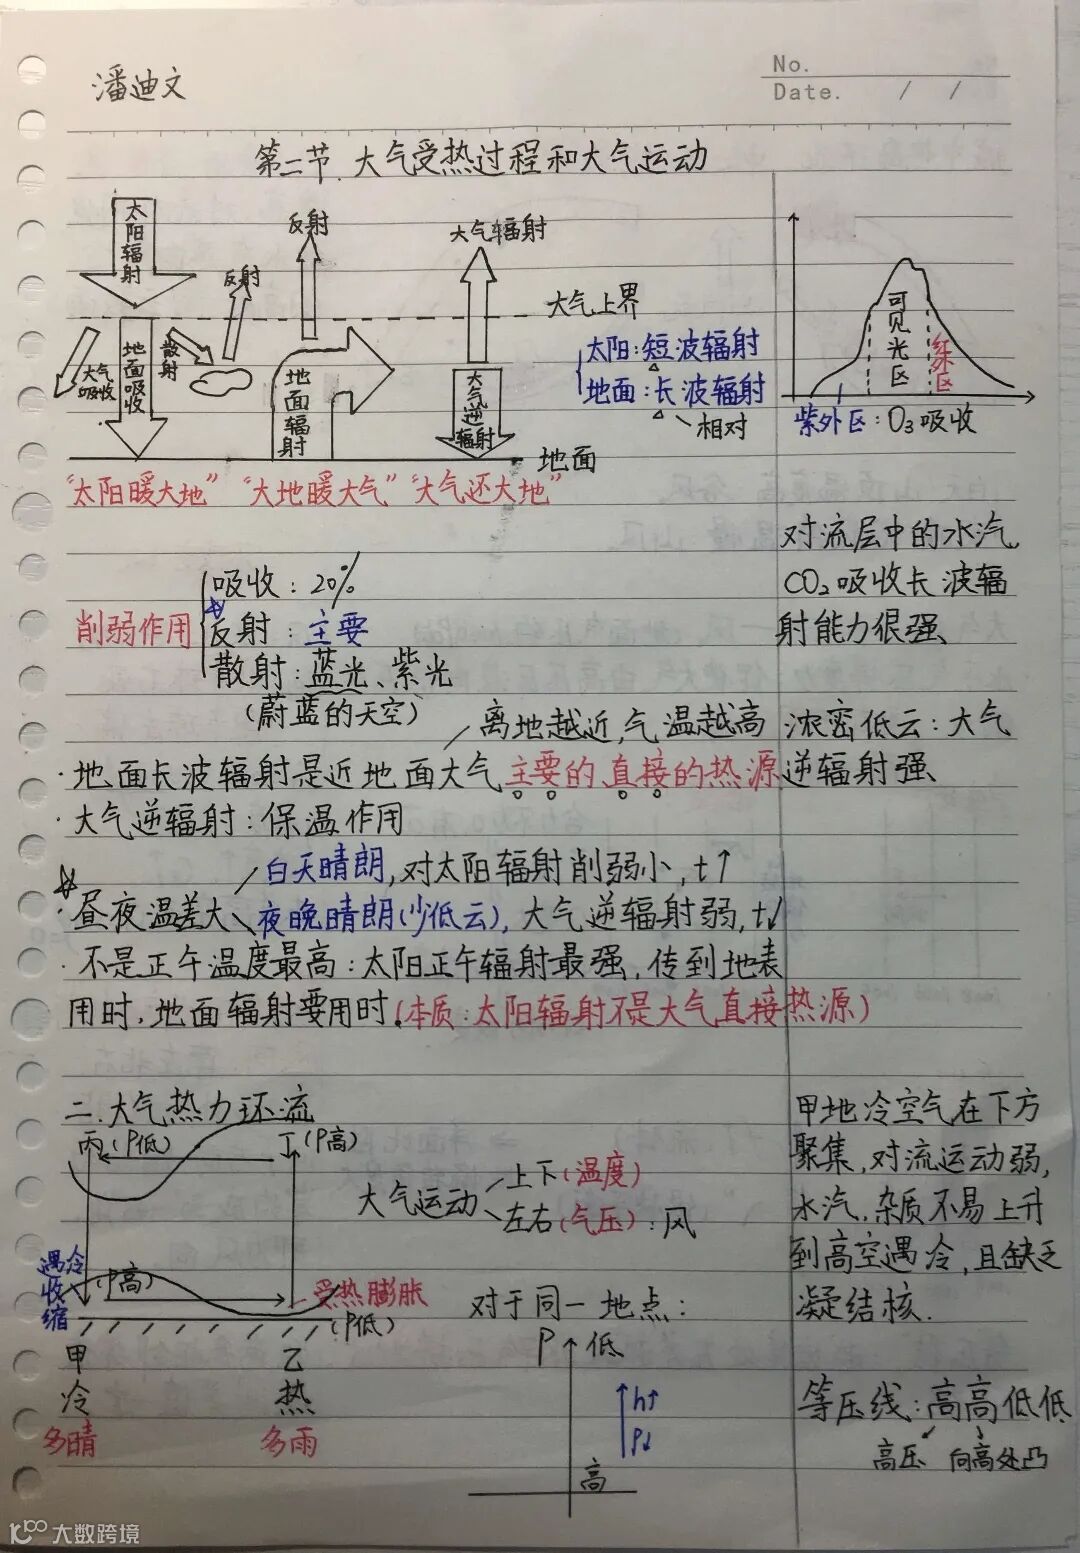 No.
潘迪文
Date. / /
第二节.大气受热过程和大气运动
太阳辐射
反射
反射
大气辐射
大气上界
大气吸收
地面吸收
散射
地面辐射
大气逆辐射
太阳:短波辐射
地面:长波辐射
相对
地面
可见光区
红外区
紫外区:O₃吸收
“太阳暖大地” “大地暖大气” “大气还大地”
对流层中的水汽、
CO₂吸收长波辐
射能力很强、
削弱作用
吸收:20%
反射:主要
散射:蓝光、紫光
(蔚蓝的天空)
离地越近,气温越高
浓密低云:大气
逆辐射强、
·地面长波辐射是近地面大气主要的直接的热源
·大气逆辐射:保温作用
白天晴朗,对太阳辐射削弱小,t↑
·昼夜温差大
夜晚晴朗(少低云),大气逆辐射弱,t↓
·不是正午温度最高:太阳正午辐射最强,传到地表
用时,地面辐射要用时.(本质:太阳辐射不是大气直接热源)
二.大气热力环流
丙(P低)
丁(P高)
大气运动
上下(温度)
左右(气压):风
遇冷收缩
(P高)
受热膨胀
(P低)
甲
乙
冷
热
多晴
多雨
对于同一地点:
P
低
h↑
P↓
高
甲地冷空气在下方
聚集,对流运动弱,
水汽,杂质不易上升
到高空遇冷,且缺乏
凝结核.
等压线:高高低低
高压 向高处凸
大数跨境